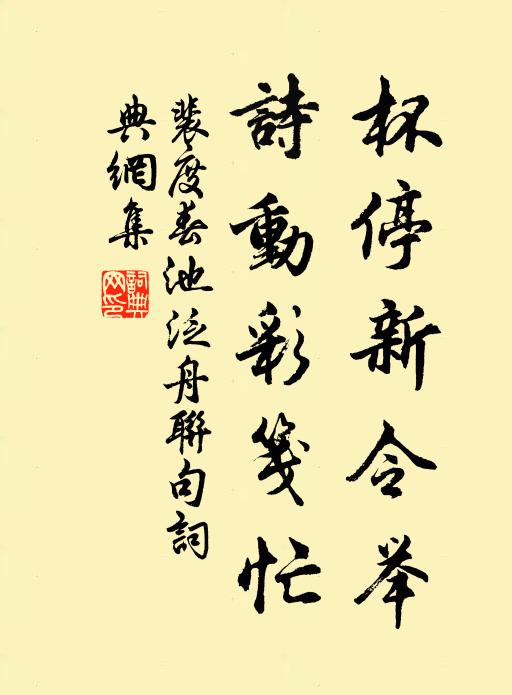 杯停新令举
詩動彩箋忙
裴度春池泛舟聯句詞
典網集
詞典
网印